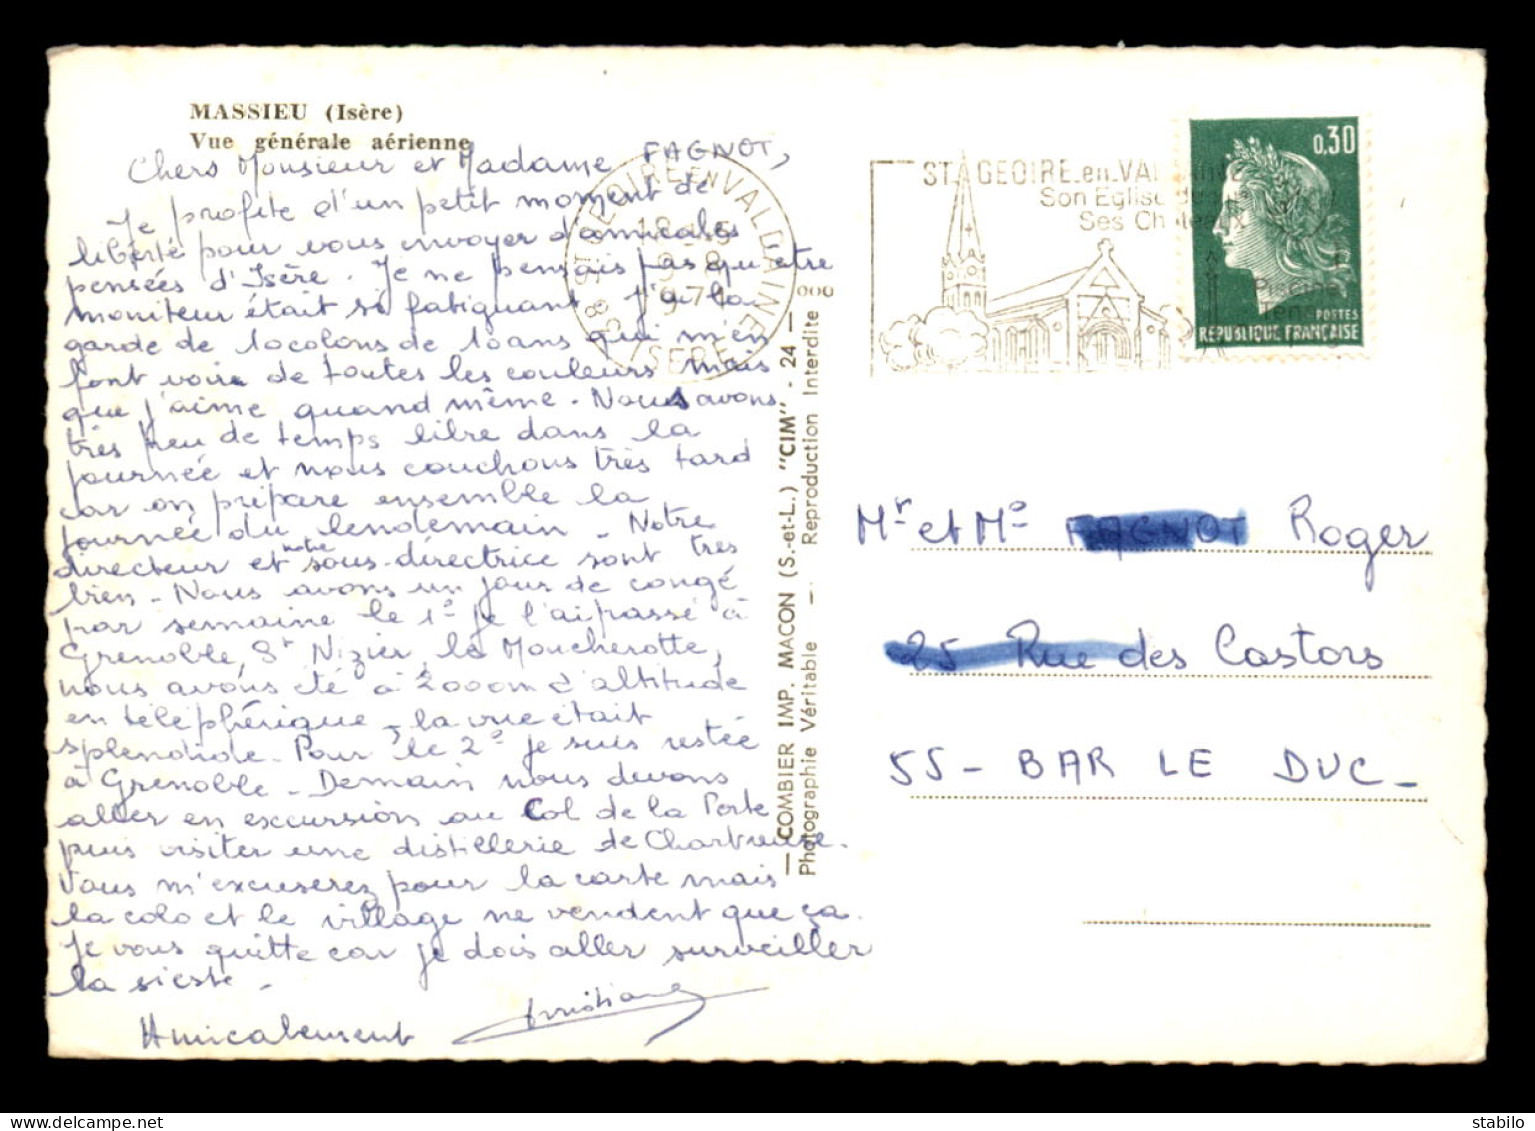 MASSIEU (Isère)
Vue générale aérienne
Chers Monsieur et Madame FAGNOT,
Je profite d'un petit moment de
liberté pour vous envoyer d'amicales
pensées d'Isère. Je ne pensais pas qu'être
moniteur était si fatiguant. J'ai la
garde de 10 colons de 10 ans qui m'en
font voir de toutes les couleurs mais
que j'aime quand même. Nous avons
très peu de temps libre dans la
journée et nous couchons très tard
car on prépare ensemble la
journée du lendemain. Notre
directeur et notre sous-directrice sont très
bien. Nous avons un jour de congé
par semaine le 1e je l'ai passé à
Grenoble, St Nizier, le Moucherotte,
nous avons été à 2000m d'altitude
en téléphérique, la vue était
splendide. Pour le 2e je suis restée
à Grenoble. Demain nous devons
aller en excursion au Col de la Porte
puis visiter une distillerie de Chartreuse.
Vous m'excuserez pour la carte mais
la colo et le village ne vendent que ça.
Je vous quitte car je dois aller surveiller
la sieste.
Amicalement
Christiane
38 ST GEOIRE EN VALDAINE
ISERE
1971
COMBIER IMP. MACON (S.-et-L.) "CIM" - 24 —
Photographie Véritable — Reproduction Interdite
000
ST GEOIRE.en.VAL
Son Eglise
Ses Ch
0,30
POSTES
REPUBLIQUE FRANÇAISE
Mr et Me FAGNOT Roger
25 Rue des Castors
55 - BAR LE DUC -
stabilo